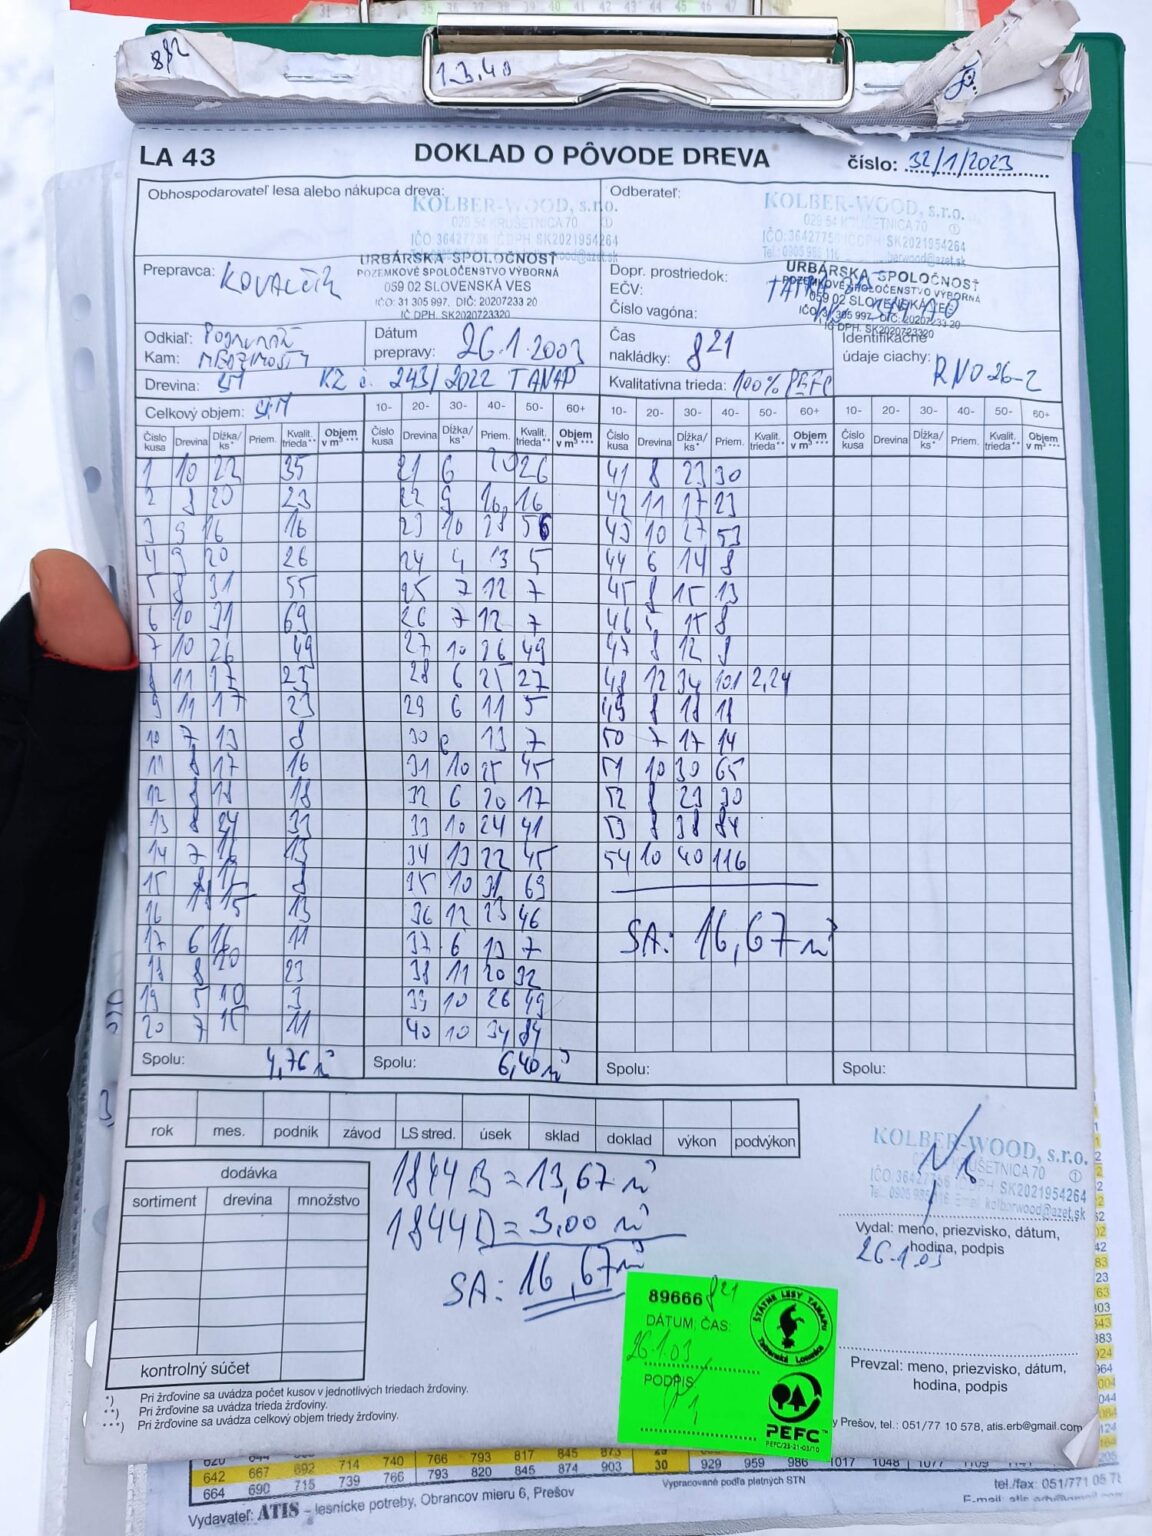 8/2
1.3.40
LA 43
DOKLAD O PÔVODE DREVA
číslo: 32/1/2023
Obhospodarovateľ lesa alebo nákupca dreva:
KOLBER-WOOD, s.r.o.
029 54 KRUŠETNICA 70
IČO: 36427756 IČ DPH SK2021954264
Odberateľ:
KOLBER-WOOD, s.r.o.
029 54 KRUŠETNICA 70
IČO: 36427756 IČ DPH SK2021954264
Prepravca: KOVALČÍK
URBÁRSKA SPOLOČNOSŤ
POZEMKOVÉ SPOLOČENSTVO VÝBORNÁ
059 02 SLOVENSKÁ VES
IČO: 31 305 997, DIČ: 20207233 20
IČ DPH. SK2020723320
Dopr. prostriedok: TATRA
EČV:
Číslo vagóna:
URBÁRSKA SPOLOČNOSŤ
POZEMKOVÉ SPOLOČENSTVO VÝBORNÁ
059 02 SLOVENSKÁ VES
IČ DPH. SK2020723320
Odkiaľ:
Kam:
Dátum prepravy: 26.1.2003
Čas nakládky: 821
Identifikačné údaje ciachy: RNO 26-2
Drevina: SM KZ č. 243/2022 TANAP
Kvalitatívna trieda: 100% PEFC
Celkový objem: SM
10- 20- 30- 40- 50- 60+ 10- 20- 30- 40- 50- 60+ 10- 20- 30- 40- 50- 60+
Číslo kusa Drevina Dĺžka/ks* Priem. Kvalit. trieda** Objem v m³*** Číslo kusa Drevina Dĺžka/ks* Priem. Kvalit. trieda** Objem v m³*** Číslo kusa Drevina Dĺžka/ks* Priem. Kvalit. trieda** Objem v m³*** Číslo kusa Drevina Dĺžka/ks* Priem. Kvalit. trieda** Objem v m³***
1 10 22 35 21 6 20 26 41 8 23 30
2 8 20 23 22 9 16 16 42 11 17 23
3 9 16 16 23 10 28 56 43 10 27 53
4 9 20 26 24 4 13 5 44 6 14 8
5 8 31 55 25 7 12 7 45 8 15 13
6 10 31 69 26 7 12 7 46 5 15 8
7 10 26 49 27 10 26 49 47 8 12 9
8 11 17 23 28 6 25 27 48 12 34 101 2,24
9 11 17 23 29 6 11 5 49 8 18 18
10 7 13 8 30 13 7 50 7 17 14
11 8 17 16 31 10 25 45 51 10 30 65
12 8 18 18 32 6 20 17 52 8 23 30
13 8 24 33 33 10 24 41 53 8 38 84
14 7 13 34 13 22 45 54 10 40 116
15 8 35 10 31 69
16 15 13 36 12 23 46
17 6 16 11 37 6 13 7
18 8 20 23 38 11 20 32
19 5 10 3 39 10 26 49
20 7 15 11 40 10 34 84
SA: 16,67 m³
Spolu: 4,76 m³ Spolu: 6,40 m³ Spolu: Spolu:
rok mes. podnik závod LS stred. úsek sklad doklad výkon podvýkon
dodávka
sortiment drevina množstvo
kontrolný súčet
1844 B = 13,67 m³
1844 D = 3,00 m³
SA: 16,67 m³
KOLBER-WOOD, s.r.o.
KRUŠETNICA 70
SK2021954264
Vydal: meno, priezvisko, dátum,
hodina, podpis
26.1.03
89666 821
DÁTUM, ČAS:
26.1.03
PODPIS
ŠTÁTNE LESY TANAPu
Tatranská Lomnica
PEFC
PEFC/23-21-03/10
Prevzal: meno, priezvisko, dátum,
hodina, podpis
*) Pri žrďovine sa uvádza počet kusov v jednotlivých triedach žrďoviny.
**) Pri žrďovine sa uvádza trieda žrďoviny.
***) Pri žrďovine sa uvádza celkový objem triedy žrďoviny.
y Prešov, tel.: 051/77 10 578, atis.erb@gmail.com
642 667 692 714 740 766 793 817 845 873
664 690 715 739 766 793 820 845 874 903 30 929 959 986 1017 1048
Vypracované podľa platných STN
Vydavateľ: ATIS – lesnícke potreby, Obrancov mieru 6, Prešov
tel./fax: 051/771 05 78